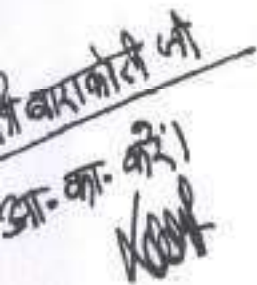 बाराकोटी जी
आ. का. करें।